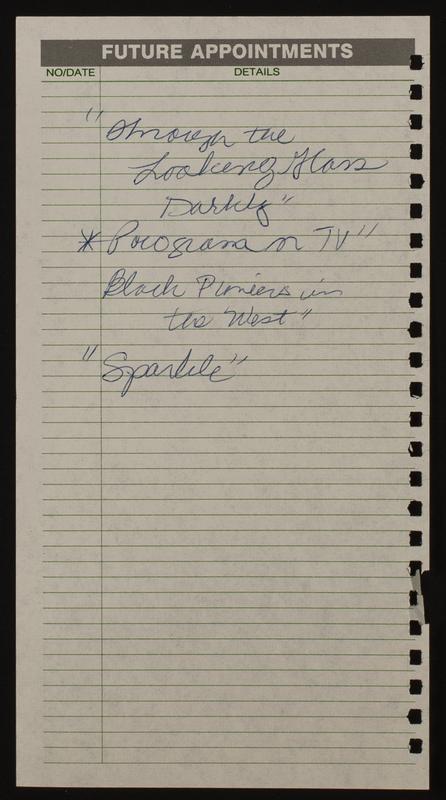 FUTURE APPOINTMENTS
NO/DATE DETAILS
"Through the
Looking Glass
Darkly"
* Program on TV"
Black Pioneers in
the West"
"Sparkle"